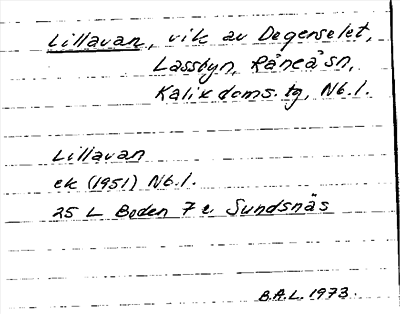 Lillavan, vik av Degerselet,
Lassbyn, Råneå sn,
Kalix doms. tg, Nb. l.
Lillavan
ek (1951) Nb. l.
25 L Boden 7 e. Sundsnäs
B.A.L. 1973.